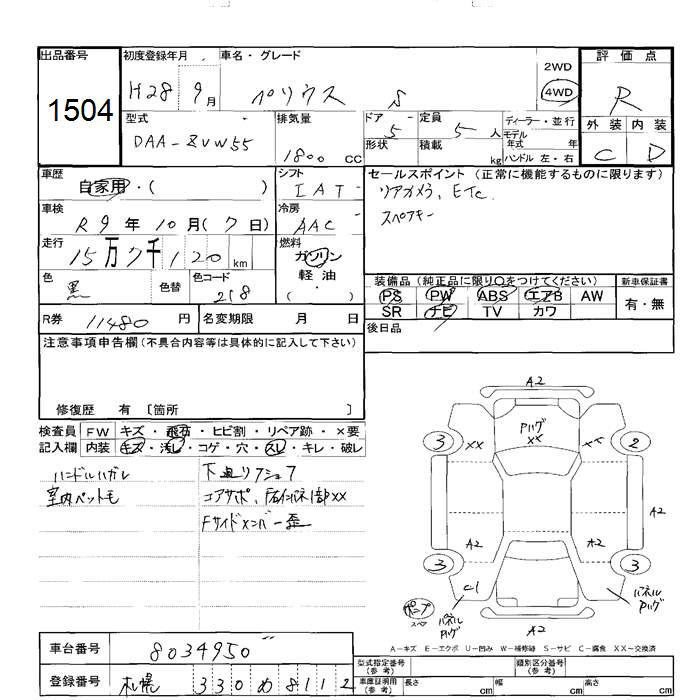 出品番号
1504
初度登録年月
H28 9月
車名・グレード
プリウス S
2WD
4WD
評価点
R
外装 内装
C D
型式
DAA-ZVW55
排気量
1800 CC
ドア 5
形状
定員 5人
積載 kg
ディーラー・並行
モデル
年式
ハンドル 左・右
車歴
自家用・( )
シフト
IAT
セールスポイント (正常に機能するものに限ります)
リアカメラ、ETC
スペアキー
車検
R9年10月(7日)
冷房
AAC
走行
15万7千120km
燃料
ガソリン
軽油
( )
色
黒
色替
色コード
218
装備品 (純正品に限り○をつけてください)
新車保証書
PS PW ABS エアB AW
SR ナビ TV カワ
有・無
R券 11480円
名変期限 月 日
後日品
注意事項申告欄(不具合内容等は具体的に記入して下さい)
修復歴 有 〔箇所 〕
検査員
記入欄
FW キズ・飛石・ヒビ割・リペア跡・×要
内装 キズ・汚レ・コゲ・穴・スレ・キレ・破レ
ハンドルハガレ
室内ペット毛
下廻りサビ
コアサポ、F左インパネ1部XX
Fサイドメンバー歪
A2
Pハグ
XX
XX
XX
3
2
A2
A2
A2
3
3
C1
ポンプ
スペア
パネル
Pハグ
パネル
Pハグ
A2
A-キズ E-エクボ U-凹み W-補修跡 S-サビ C-腐食 XX-交換済
車台番号
8034950
登録番号
札幌 330 め 8112
型式指定番号
(参考)
類別区分番号
(参考)
車庫証明用
(参考)
長さ cm
幅 cm
高さ cm